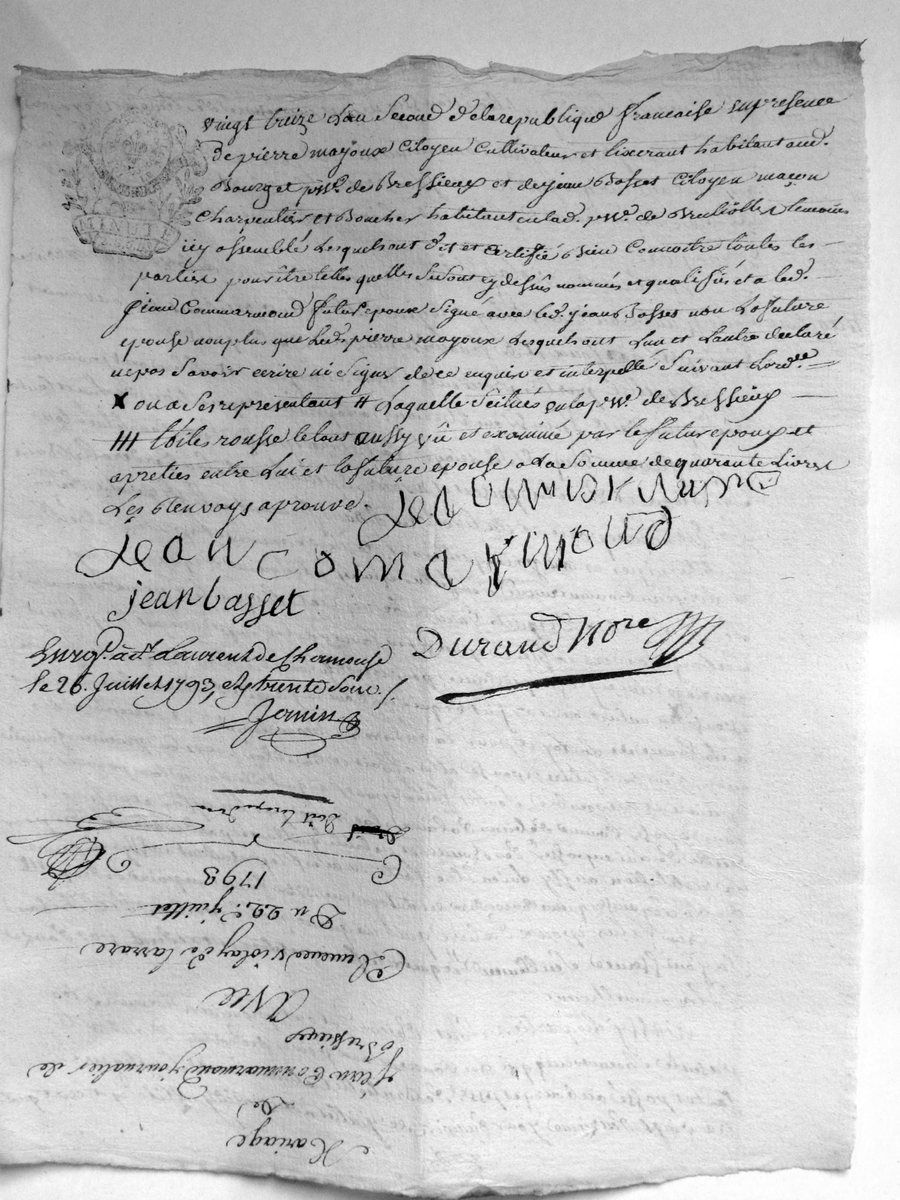 MINUTE
vingt treize Lan Second de la republique francaise en presence
De pierre mayoux Citoyen Cultivateur et habitant aud.
Bourg et psse. de Bressieux et de jean Basset Citoyen maçon
Charpentier et Boucher habitant en lad. psse. de temoins
icy assemblé Lesquels ont dit et certifié Bien Connoitre toutes les
parties pour être telles quelles Sont cy dessus nommés et qualifiés et a led.
jean Commarmond futur epoux Signé avec led. jean Basset non La future
epouse non plus que Led. pierre mayoux Lesquels ont Lun et Lautre declaré
ne pas Savoir ecrire ni Signer de ce enquis et interpellé Suivant Lord.ce
X ou a Ses representant # Laquelle Scitués en la psse. de Bressieux
toiles rousse le tout aussy vû et examiné par le futur epoux et
apretiés entre Lui et la future epouse a La Somme de quarante Livres
Les Renvoys aprouvé.
Jean Comarmond
jean basset
Durand Nore
Enrg. à St Laurent de Chamousset
le 26. Juillet 1793,
Mariage
De
Jean Commarmond journalier de
Bressieux
Avec
Clemence violay de tarrare
Du 22.e juillet
1793